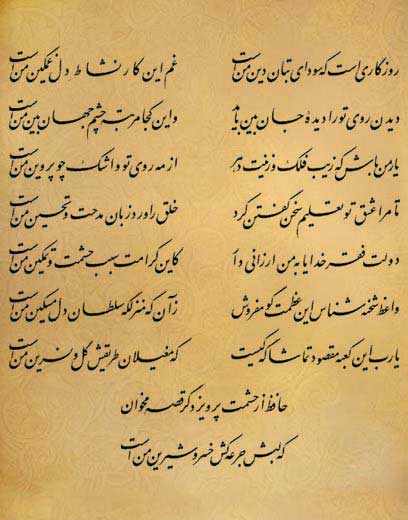 روزگاری است که سودای بتان دین من است غم این کار نشاط دل غمگین من است
دیدن روی تو را دیدهٔ جان بین باید واین کجا مرتبهٔ چشم جهان بین من است
یار من باش که زیب فلک و زینت دهر از مه روی تو و اشک چو پروین من است
تا مرا عشق تو تعلیم سخن گفتن کرد خلق را ورد زبان مدحت و تحسین من است
دولت فقر خدایا به من ارزانی دار کاین کرامت سبب حشمت و تمکین من است
واعظ شحنه شناس این عظمت گو مفروش زآن که منزلگه سلطان دل مسکین من است
یارب این کعبه مقصود تماشاگه کیست که مغیلان طریقش گل و نسرین من است
حافظ از حشمت پرویز دگر قصه مخوان
که لبش جرعه کش خسرو شیرین من است